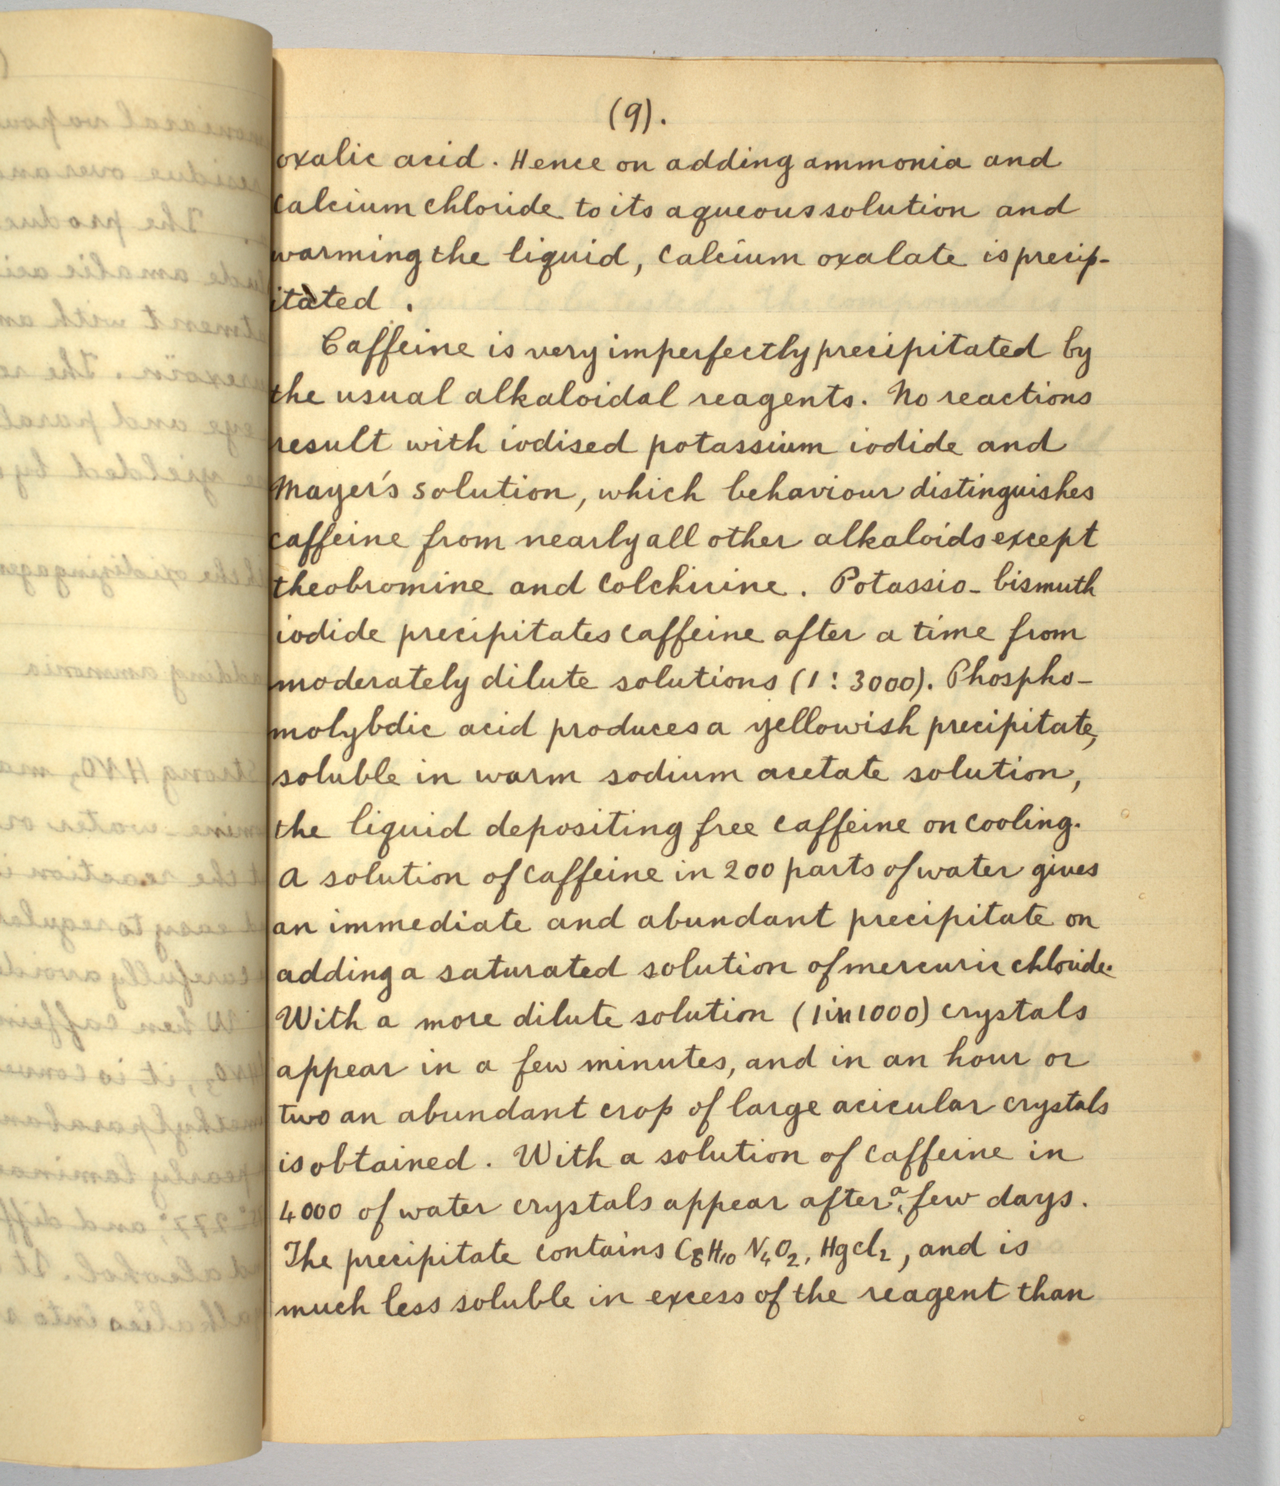 (9).
oxalic acid. Hence on adding ammonia and
calcium chloride to its aqueous solution and
warming the liquid, calcium oxalate is precip-
itated.
Caffeine is very imperfectly precipitated by
the usual alkaloidal reagents. No reactions
result with iodised potassium iodide and
Mayer's solution, which behaviour distinguishes
caffeine from nearly all other alkaloids except
theobromine and colchicine. Potassio-bismuth
iodide precipitates caffeine after a time from
moderately dilute solutions (1:3000). Phospho-
molybdic acid produces a yellowish precipitate,
soluble in warm sodium acetate solution,
the liquid depositing free caffeine on cooling.
A solution of caffeine in 200 parts of water gives
an immediate and abundant precipitate on
adding a saturated solution of mercuric chloride.
With a more dilute solution (1 in 1000) crystals
appear in a few minutes, and in an hour or
two an abundant crop of large acicular crystals
is obtained. With a solution of caffeine in
4000 of water crystals appear after a few days.
The precipitate contains C8H10N4O2, HgCl2, and is
much less soluble in excess of the reagent than